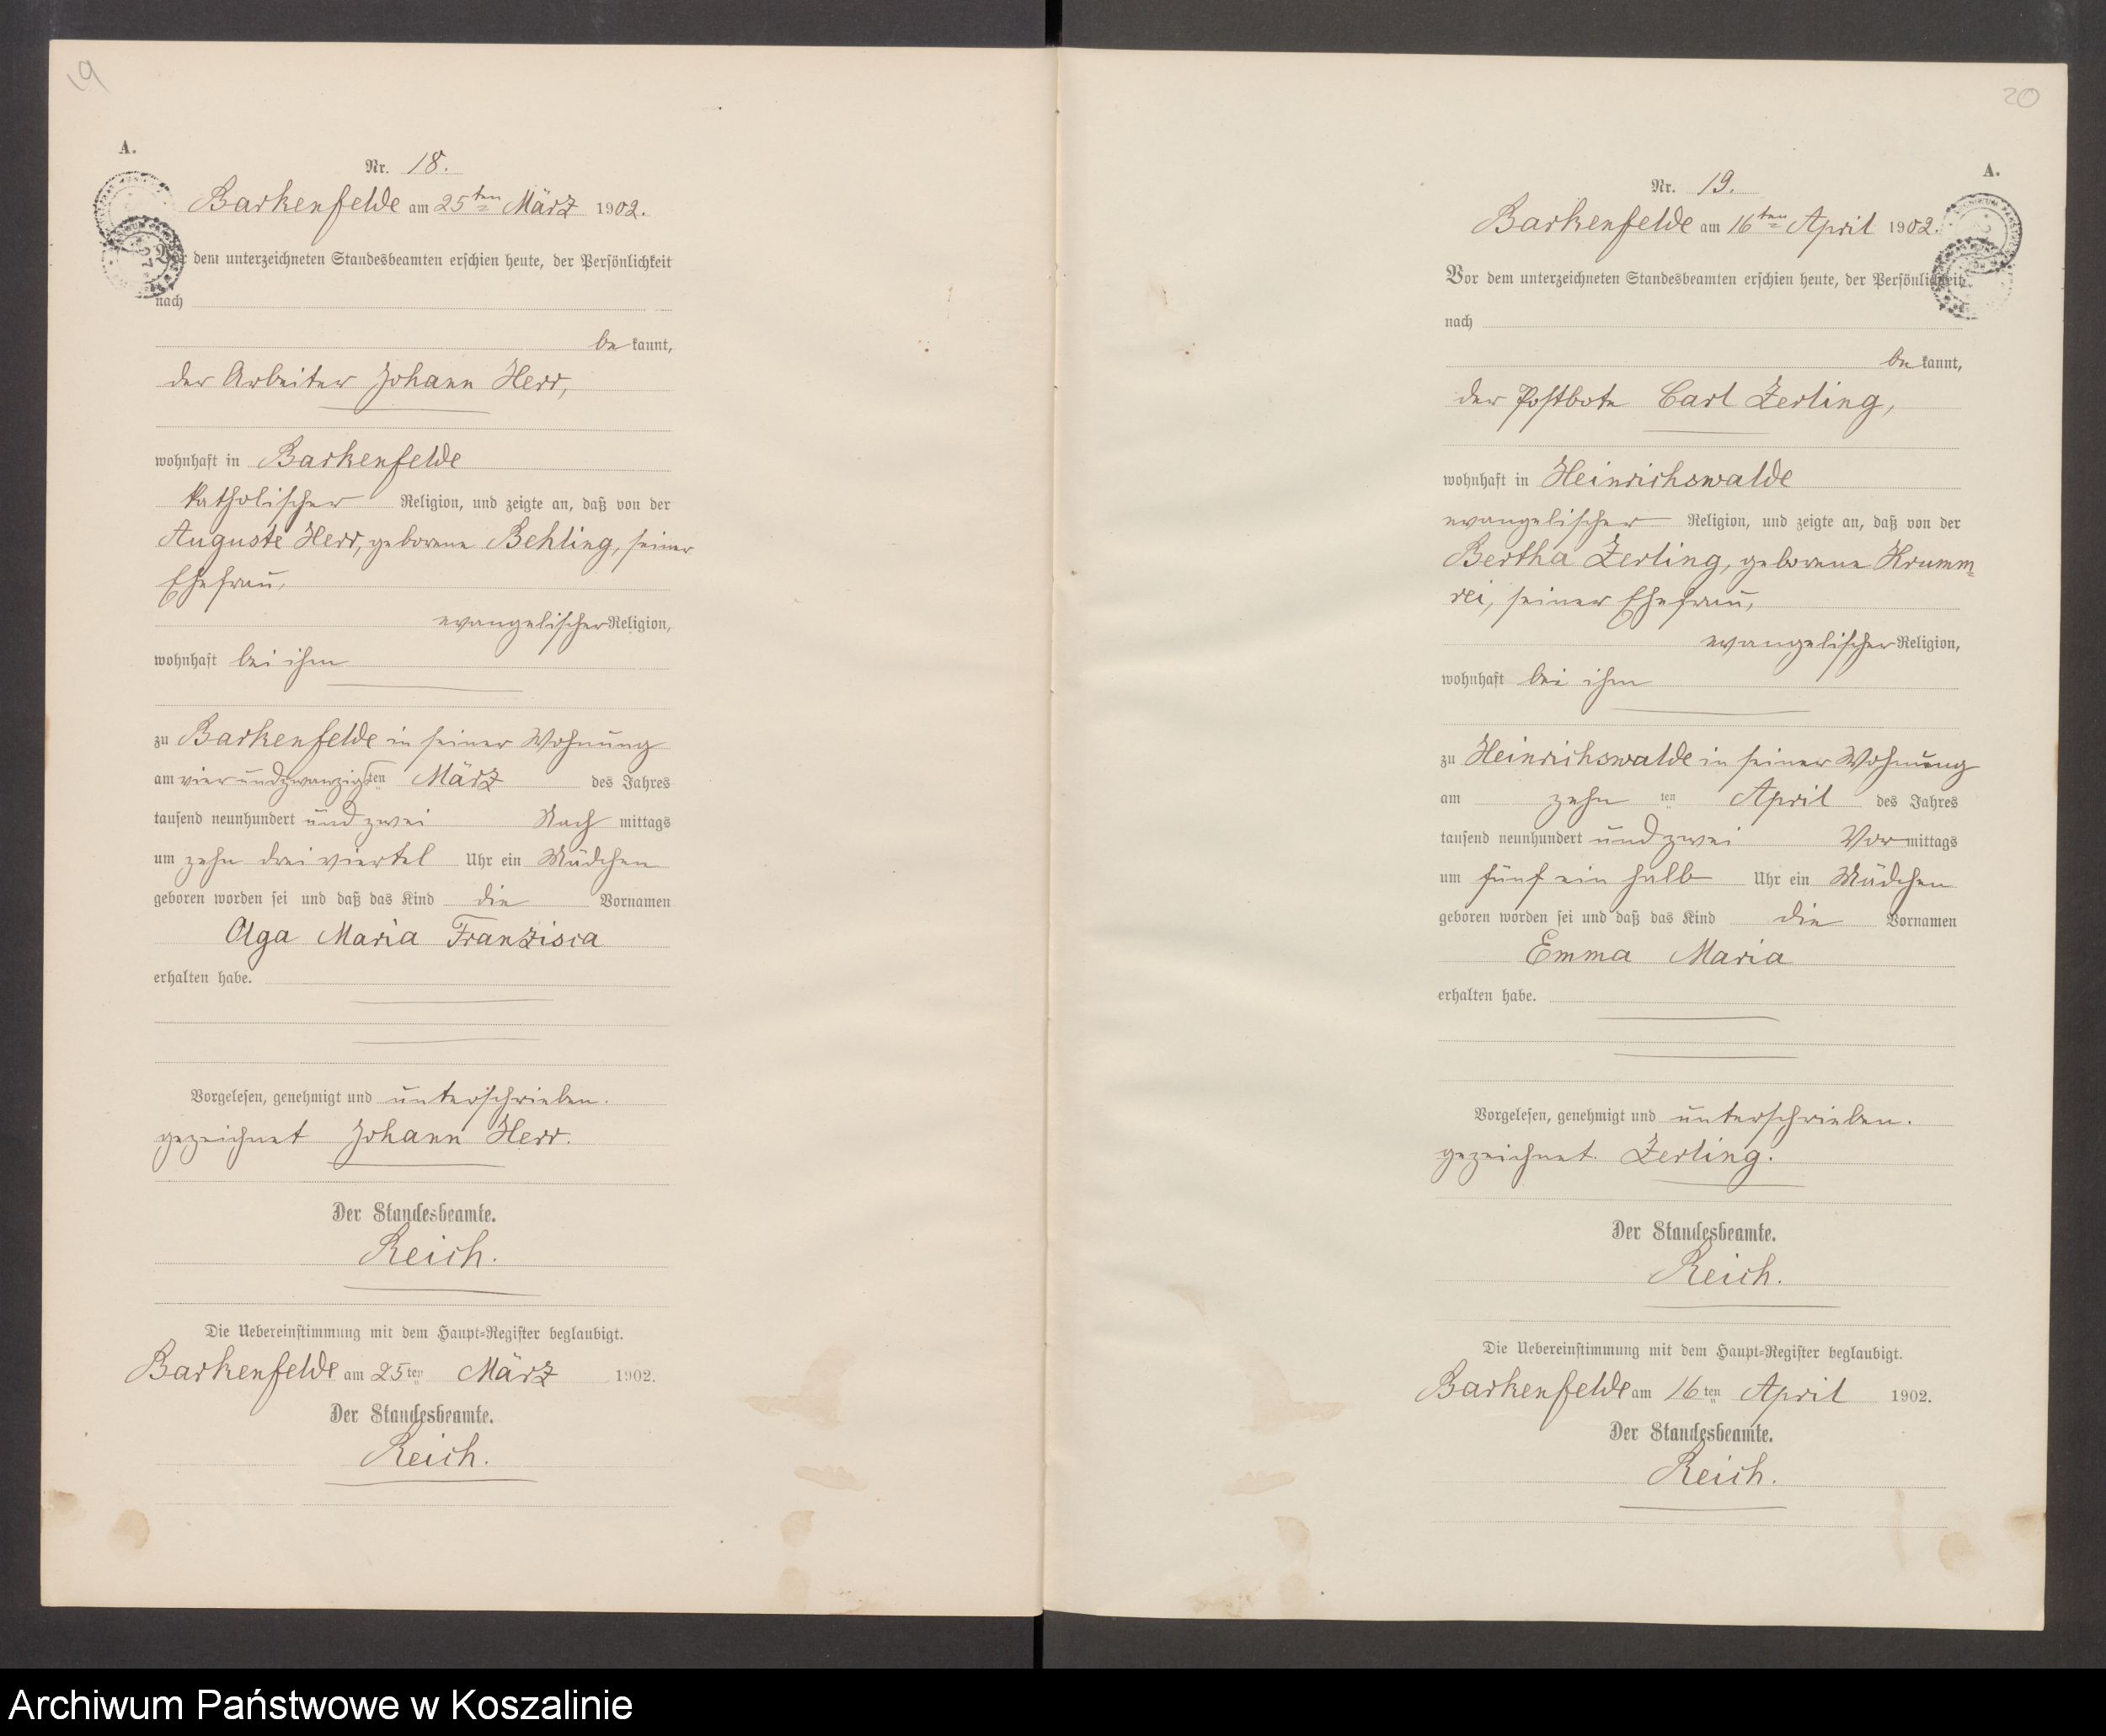 19
A.
Nr. 18.
Barkenfelde am 25ten März 1902.
Vor dem unterzeichneten Standesbeamten erschien heute, der Persönlichkeit
nach
be kannt,
der Arbeiter Johann Herr,
wohnhaft in Barkenfelde
katholischer Religion, und zeigte an, daß von der
Auguste Herr, geborene Behling, seiner
Ehefrau,
evangelischer Religion,
wohnhaft bei ihm
zu Barkenfelde in seiner Wohnung
am vierundzwanzigsten März des Jahres
tausend neunhundert und zwei Nach mittags
um zehn drei viertel Uhr ein Mädchen
geboren worden sei und daß das Kind die Vornamen
Olga Maria Franzisca
erhalten habe.
Vorgelesen, genehmigt und unterschrieben.
gezeichnet Johann Herr.
Der Standesbeamte.
Reich.
Die Uebereinstimmung mit dem Haupt-Register beglaubigt.
Barkenfelde am 25ten März 1902.
Der Standesbeamte.
Reich.
20
A.
Nr. 19.
Barkenfelde am 16ten April 1902.
Vor dem unterzeichneten Standesbeamten erschien heute, der Persönlichkeit
nach
be kannt,
der Postbote Carl Zerling,
wohnhaft in Heinrichswalde
evangelischer Religion, und zeigte an, daß von der
Bertha Zerling, geborene Krumm-
rei, seiner Ehefrau,
evangelischer Religion,
wohnhaft bei ihm
zu Heinrichswalde in seiner Wohnung
am zehn ten April des Jahres
tausend neunhundert und zwei Vor mittags
um fünf ein halb Uhr ein Mädchen
geboren worden sei und daß das Kind die Vornamen
Emma Maria
erhalten habe.
Vorgelesen, genehmigt und unterschrieben.
gezeichnet Zerling.
Der Standesbeamte.
Reich.
Die Uebereinstimmung mit dem Haupt-Register beglaubigt.
Barkenfelde am 16ten April 1902.
Der Standesbeamte.
Reich.
Archiwum Państwowe w Koszalinie